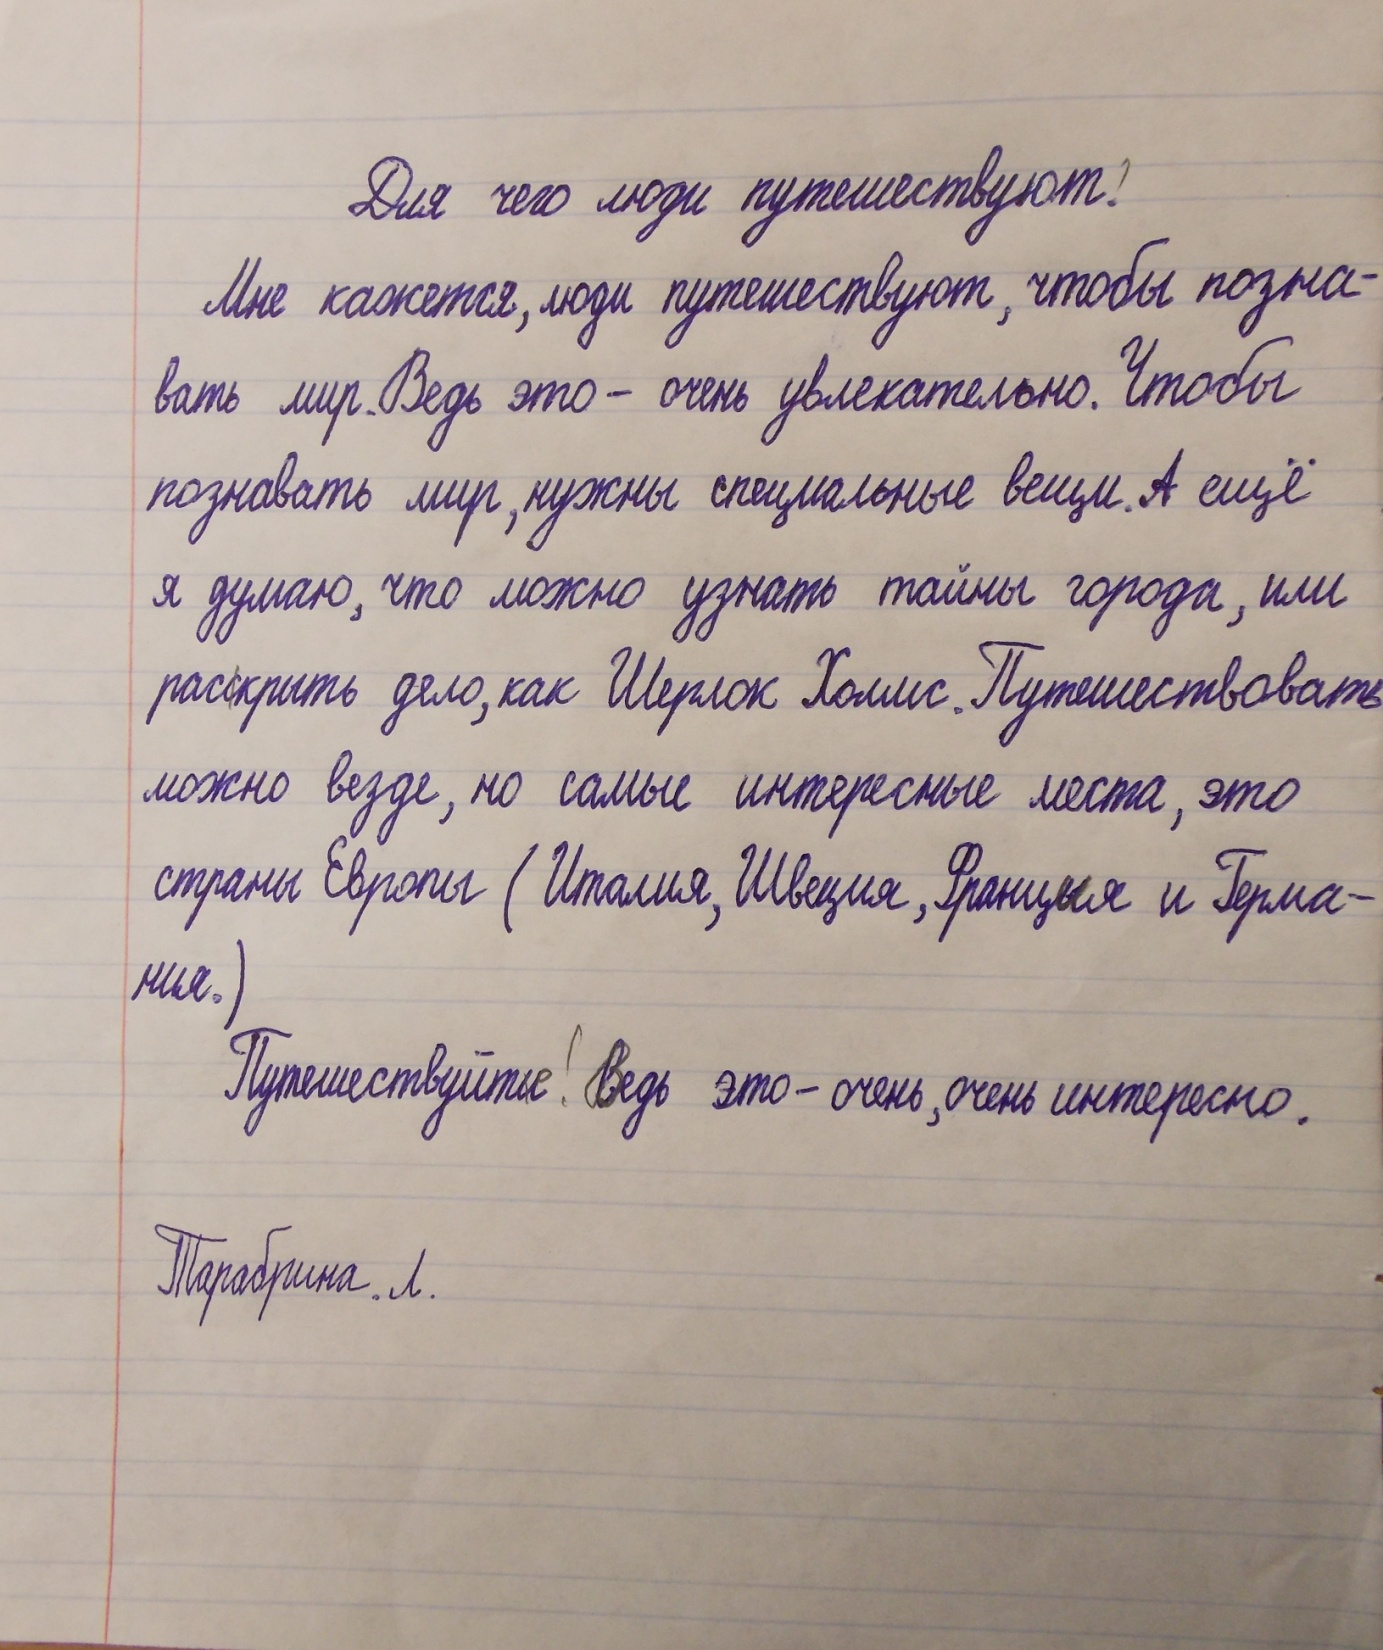 Для чего люди путешествуют!
Мне кажется, люди путешествуют, чтобы позна-
вать мир. Ведь это – очень увлекательно. Чтобы
познавать мир, нужны специальные вещи. А ещё
я думаю, что можно узнать тайны города, или
расскрыть дело, как Шерлок Холмс. Путешествовать
можно везде, но самые интересные места, это
страны Европы (Италия, Швеция, Франция и Герма-
ния.)
Путешествуйте! Ведь это – очень, очень интересно.
Тарабрина. Л.